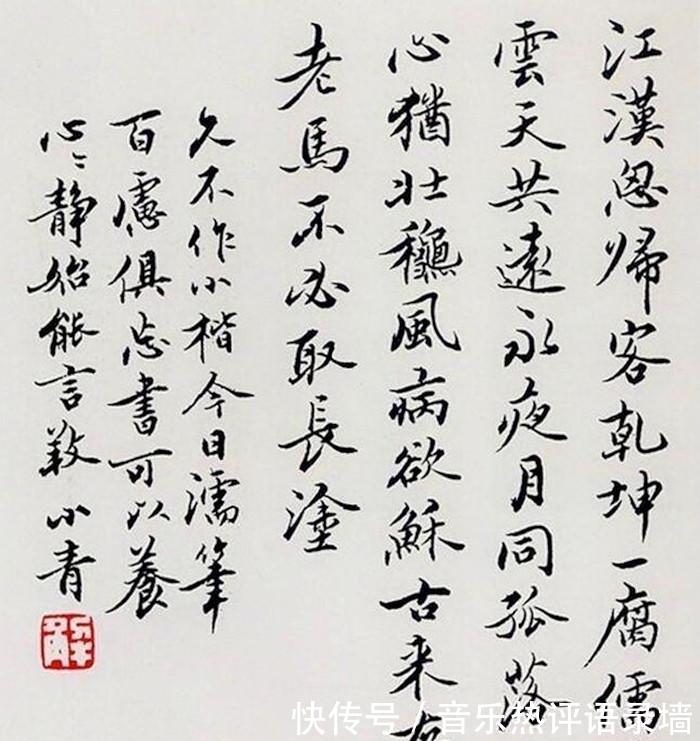 江漢思帰客乾坤一腐儒
雲天共遠永夜月同孤落
心猶壯穐風病欲穌古来存
老馬不必取長塗
久不作小楷今日濡筆
百慮俱忘書可以養
心〻静始能言 小青
快传号/音乐热评语录墙